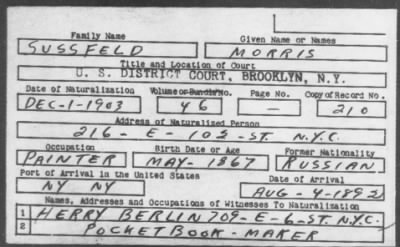 Family Name Given Name or Names
SUSSFELD MORRIS
Title and Location of Court
U. S. DISTRICT COURT, BROOKLYN, N.Y.
Date of Naturalization Volume or Bundle No. Page No. Copy of Record No.
DEC-1-1903 46 — 210
Address of Naturalized Person
216-E-103-ST. N.Y.C.
Occupation Birth Date or Age Former Nationality
PAINTER MAY-1867 RUSSIAN
Port of Arrival in the United States Date of Arrival
NY NY AUG-4-1892
Names, Addresses and Occupations of Witnesses To Naturalization
1 HERRY BERLIN 709-E-6-ST. N.Y.C.
2 POCKETBOOK-MAKER